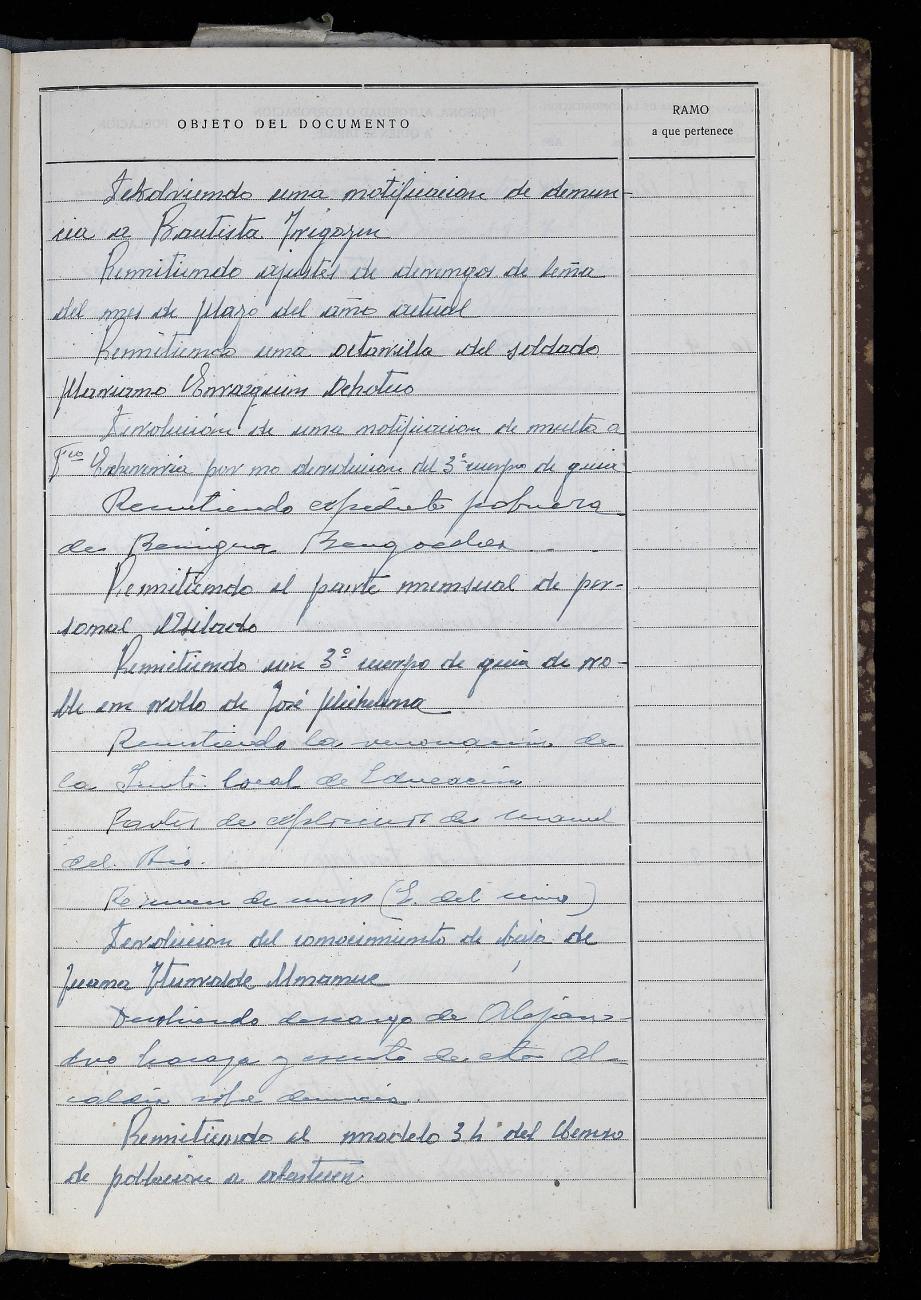 OBJETO DEL DOCUMENTO
RAMO
a que pertenece
Devolviendo una notificacion de denun-
cia a Bautista Irigoyen
Remitiendo ajustes de devengos de leña
del mes de Marzo del año actual
Remitiendo una octavilla del soldado
Mariano
Devolución de una notificacion de multa a
Fco Echeverria por no devolucion del 3º cuerpo de guia
Remitiendo expediente pobreza
de Benigna Bengoechea
Remitiendo el parte mensual de per-
sonal
Remitiendo un 3º cuerpo de guia de ro-
ble en rollo de José Michelena
Remitiendo la renovación de
la Junta local de Educación
Partes de de Manuel
del Rio.
Resumen de
Devolucion del conocimiento de baja de
Juana Iturralde
Devolviendo descargo de Alejan-
dro y escrito de esta Al-
caldia sobre denuncia.
Remitiendo el modelo 3 h del Censo
de poblacion a abastecer